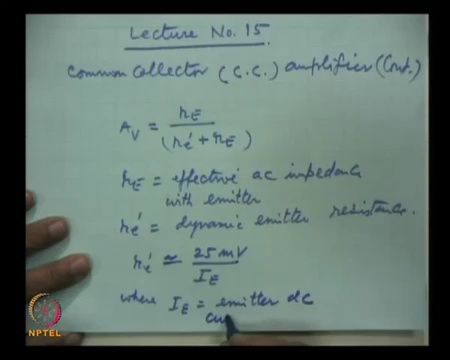 Lecture No. 15.
Common Collector (C.C.) amplifier (Cont.)
A_V = r_E / (r_e' + r_E)
r_E = effective ac impedance
with emitter
r_e' = dynamic emitter resistance.
r_e' ≃ 25 mV / I_E
where I_E = emitter dc
cu
NPTEL